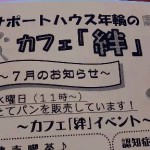 サポートハウス年輪の
カフェ「絆」
～7月のお知らせ～
水曜日(11時～)
てパンを販売しています！
～カフェ「絆」イベント～
認知症